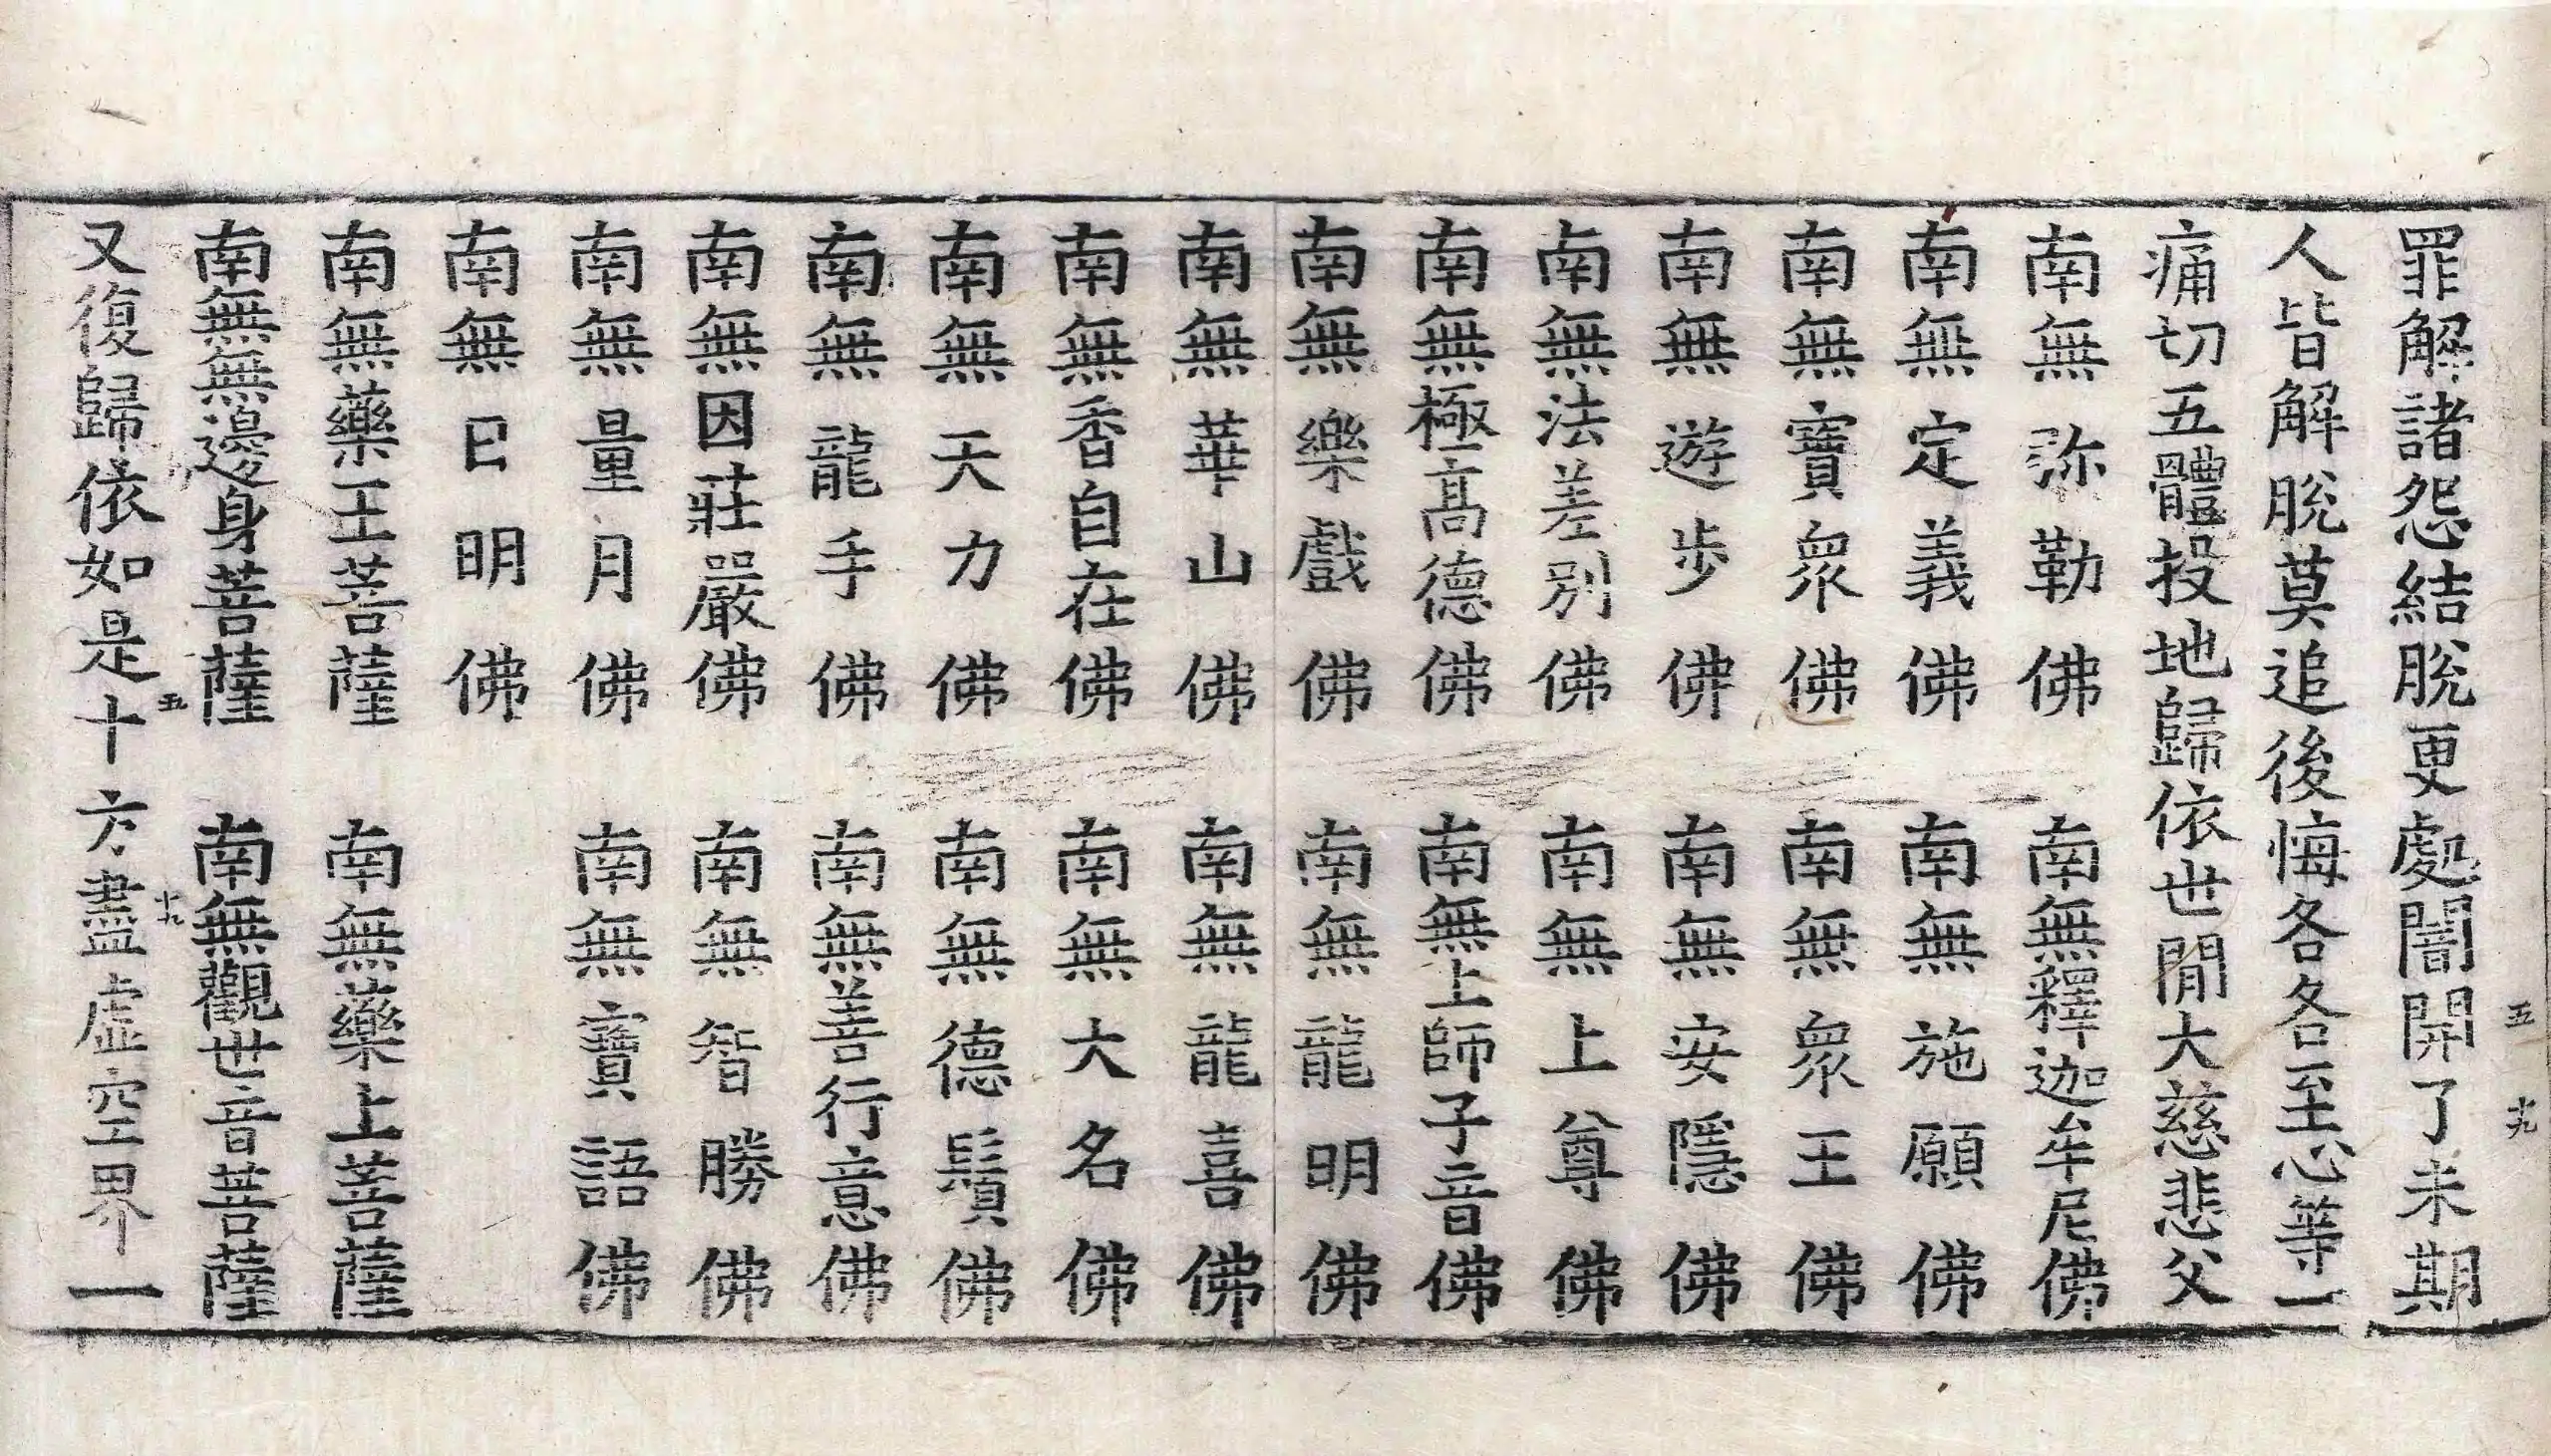 罪解諸怨結脫更處闇開了未期
人皆解脫莫追後悔各各至心等一
痛切五體投地歸依世間大慈悲父
南無弥勒佛 南無釋迦牟尼佛
南無定義佛 南無施願佛
南無寶衆佛 南無衆王佛
南無遊步佛 南無安隱佛
南無法差別佛 南無上尊佛
南無極高德佛 南無上師子音佛
南無樂戲佛 南無龍明佛
南無華山佛 南無龍喜佛
南無香自在佛 南無大名佛
南無天力佛 南無德鬚佛
南無龍手佛 南無善行意佛
南無因莊嚴佛 南無智勝佛
南無量月佛 南無寶語佛
南無日明佛
南無藥王菩薩 南無藥上菩薩
南無無邊身菩薩 南無觀世音菩薩
又復歸依如是十方盡虛空界一
五 十九
五 十九